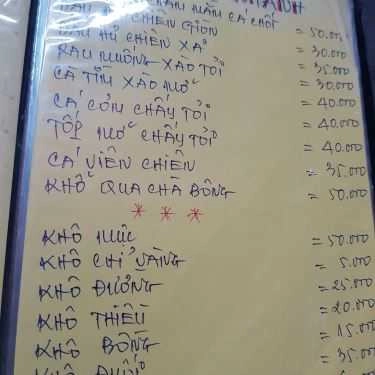 CHIÊN GIÒN = 50.000
ĐẬU HỦ CHIÊN XẢ = 30.000
RAU MUỐNG XÀO TỎI = 35.000
CÀ TÍM XÀO MỠ = 30.000
CÁ CƠM CHÁY TỎI = 40.000
TÓP MỠ CHÁY TỎI = 40.000
CÁ VIÊN CHIÊN = 40.000
KHỔ QUA CHÀ BÔNG = 35.000
= 50.000
* * *
KHÔ MỰC = 50.000
KHÔ CHỈ VÀNG = 5.000
KHÔ ĐƯỜNG = 25.000
KHÔ THIỀU = 20.000
KHÔ BỐNG = 15.000
KHÔ ĐUỐI = 35.000